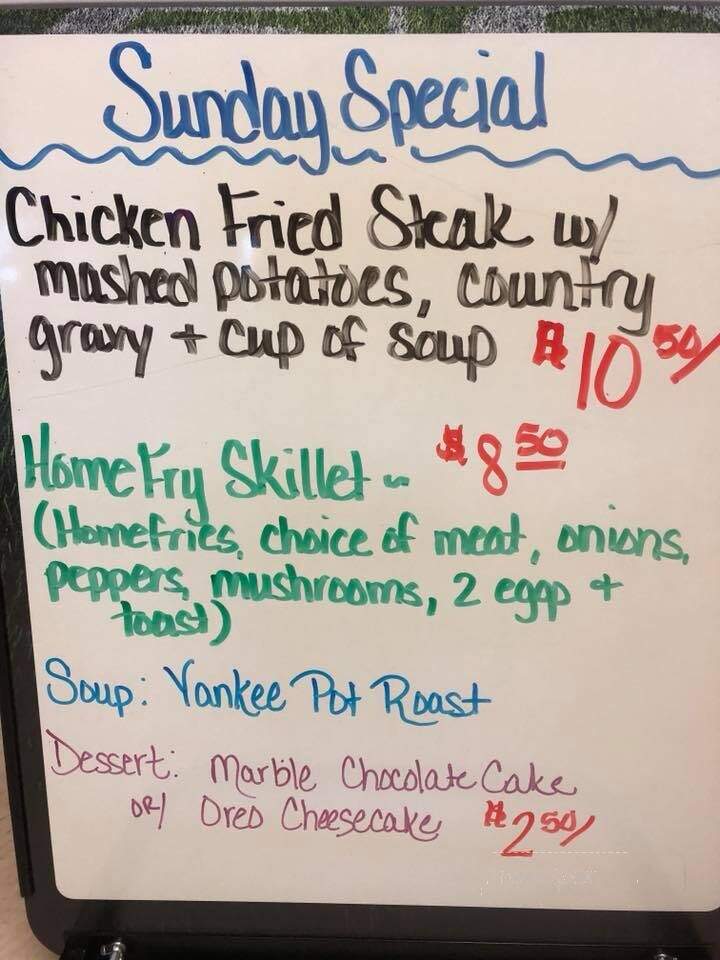 Sunday Special
Chicken Fried Steak w/
mashed potatoes, country
gravy + cup of soup $10 50/
Home Fry Skillet ~ $8 50
(Homefries, choice of meat, onions,
peppers, mushrooms, 2 eggs +
toast)
Soup: Yankee Pot Roast
Dessert: Marble Chocolate Cake
OR/ Oreo Cheesecake $2 50/